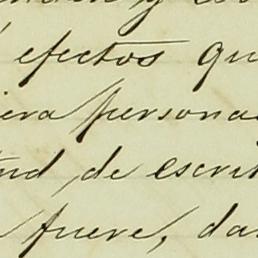 y
efectos qu
iera persona
tud, de escrit
fuere, da